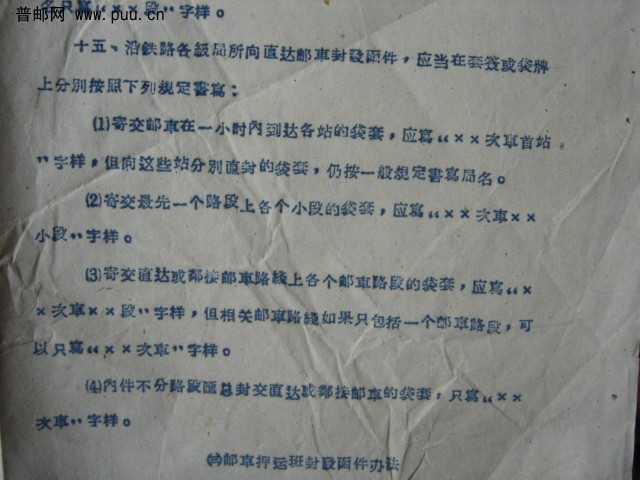 普邮网
www.puu.cn
名只寫“××段”字样。
十五、沿鉄路各級局所向直达邮車封发函件，应当在套签或袋牌
上分別按照下列規定書寫：
(1)寄交邮車在一小时內到达各站的袋套，应寫“××次車首站
”字样，但向这些站分別直封的袋套，仍按一般規定書寫局名。
(2)寄交最先一个路段上各个小段的袋套，应寫“××次車××
小段”字样。
(3)寄交直达或邻接邮車路綫上各个邮車路段的袋套，应寫“×
×次車××段”字样，但相关邮車路綫如果只包括一个邮車路段，可
以只寫“××次車”字样。
(4)內件不分路段匯总封交直达或邻接邮車的袋套，只寫“××
次車”字样。
㈢邮車押运班封发函件办法